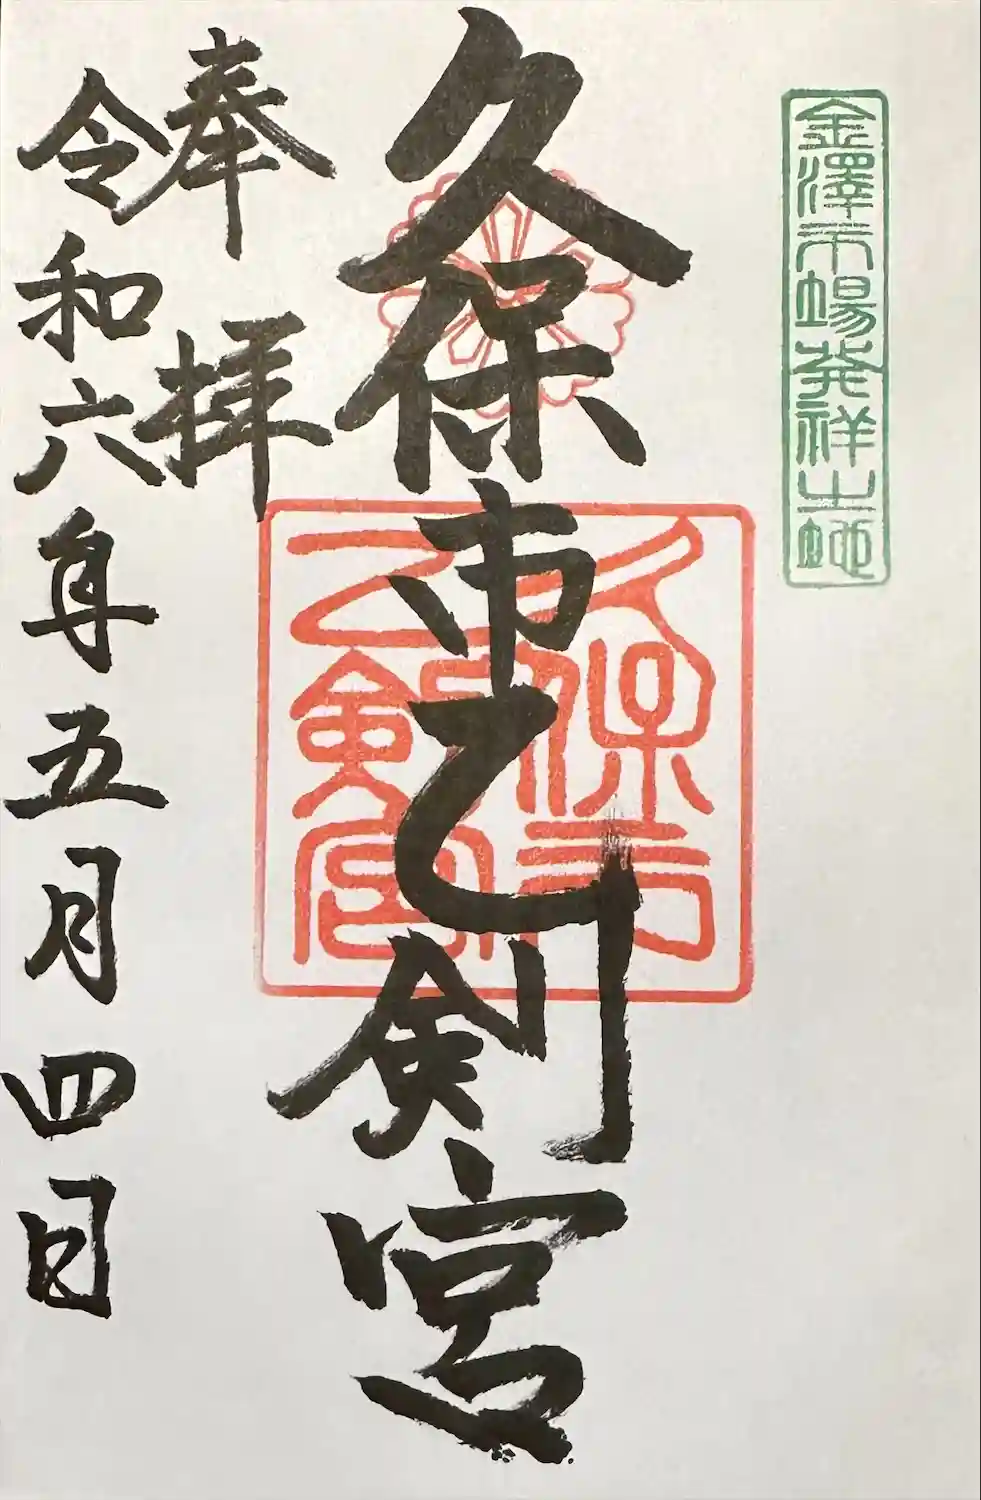 金澤市場発祥之地
久保市乙剣宮
久保市
乙剣宮
奉拝
令和六年五月四日